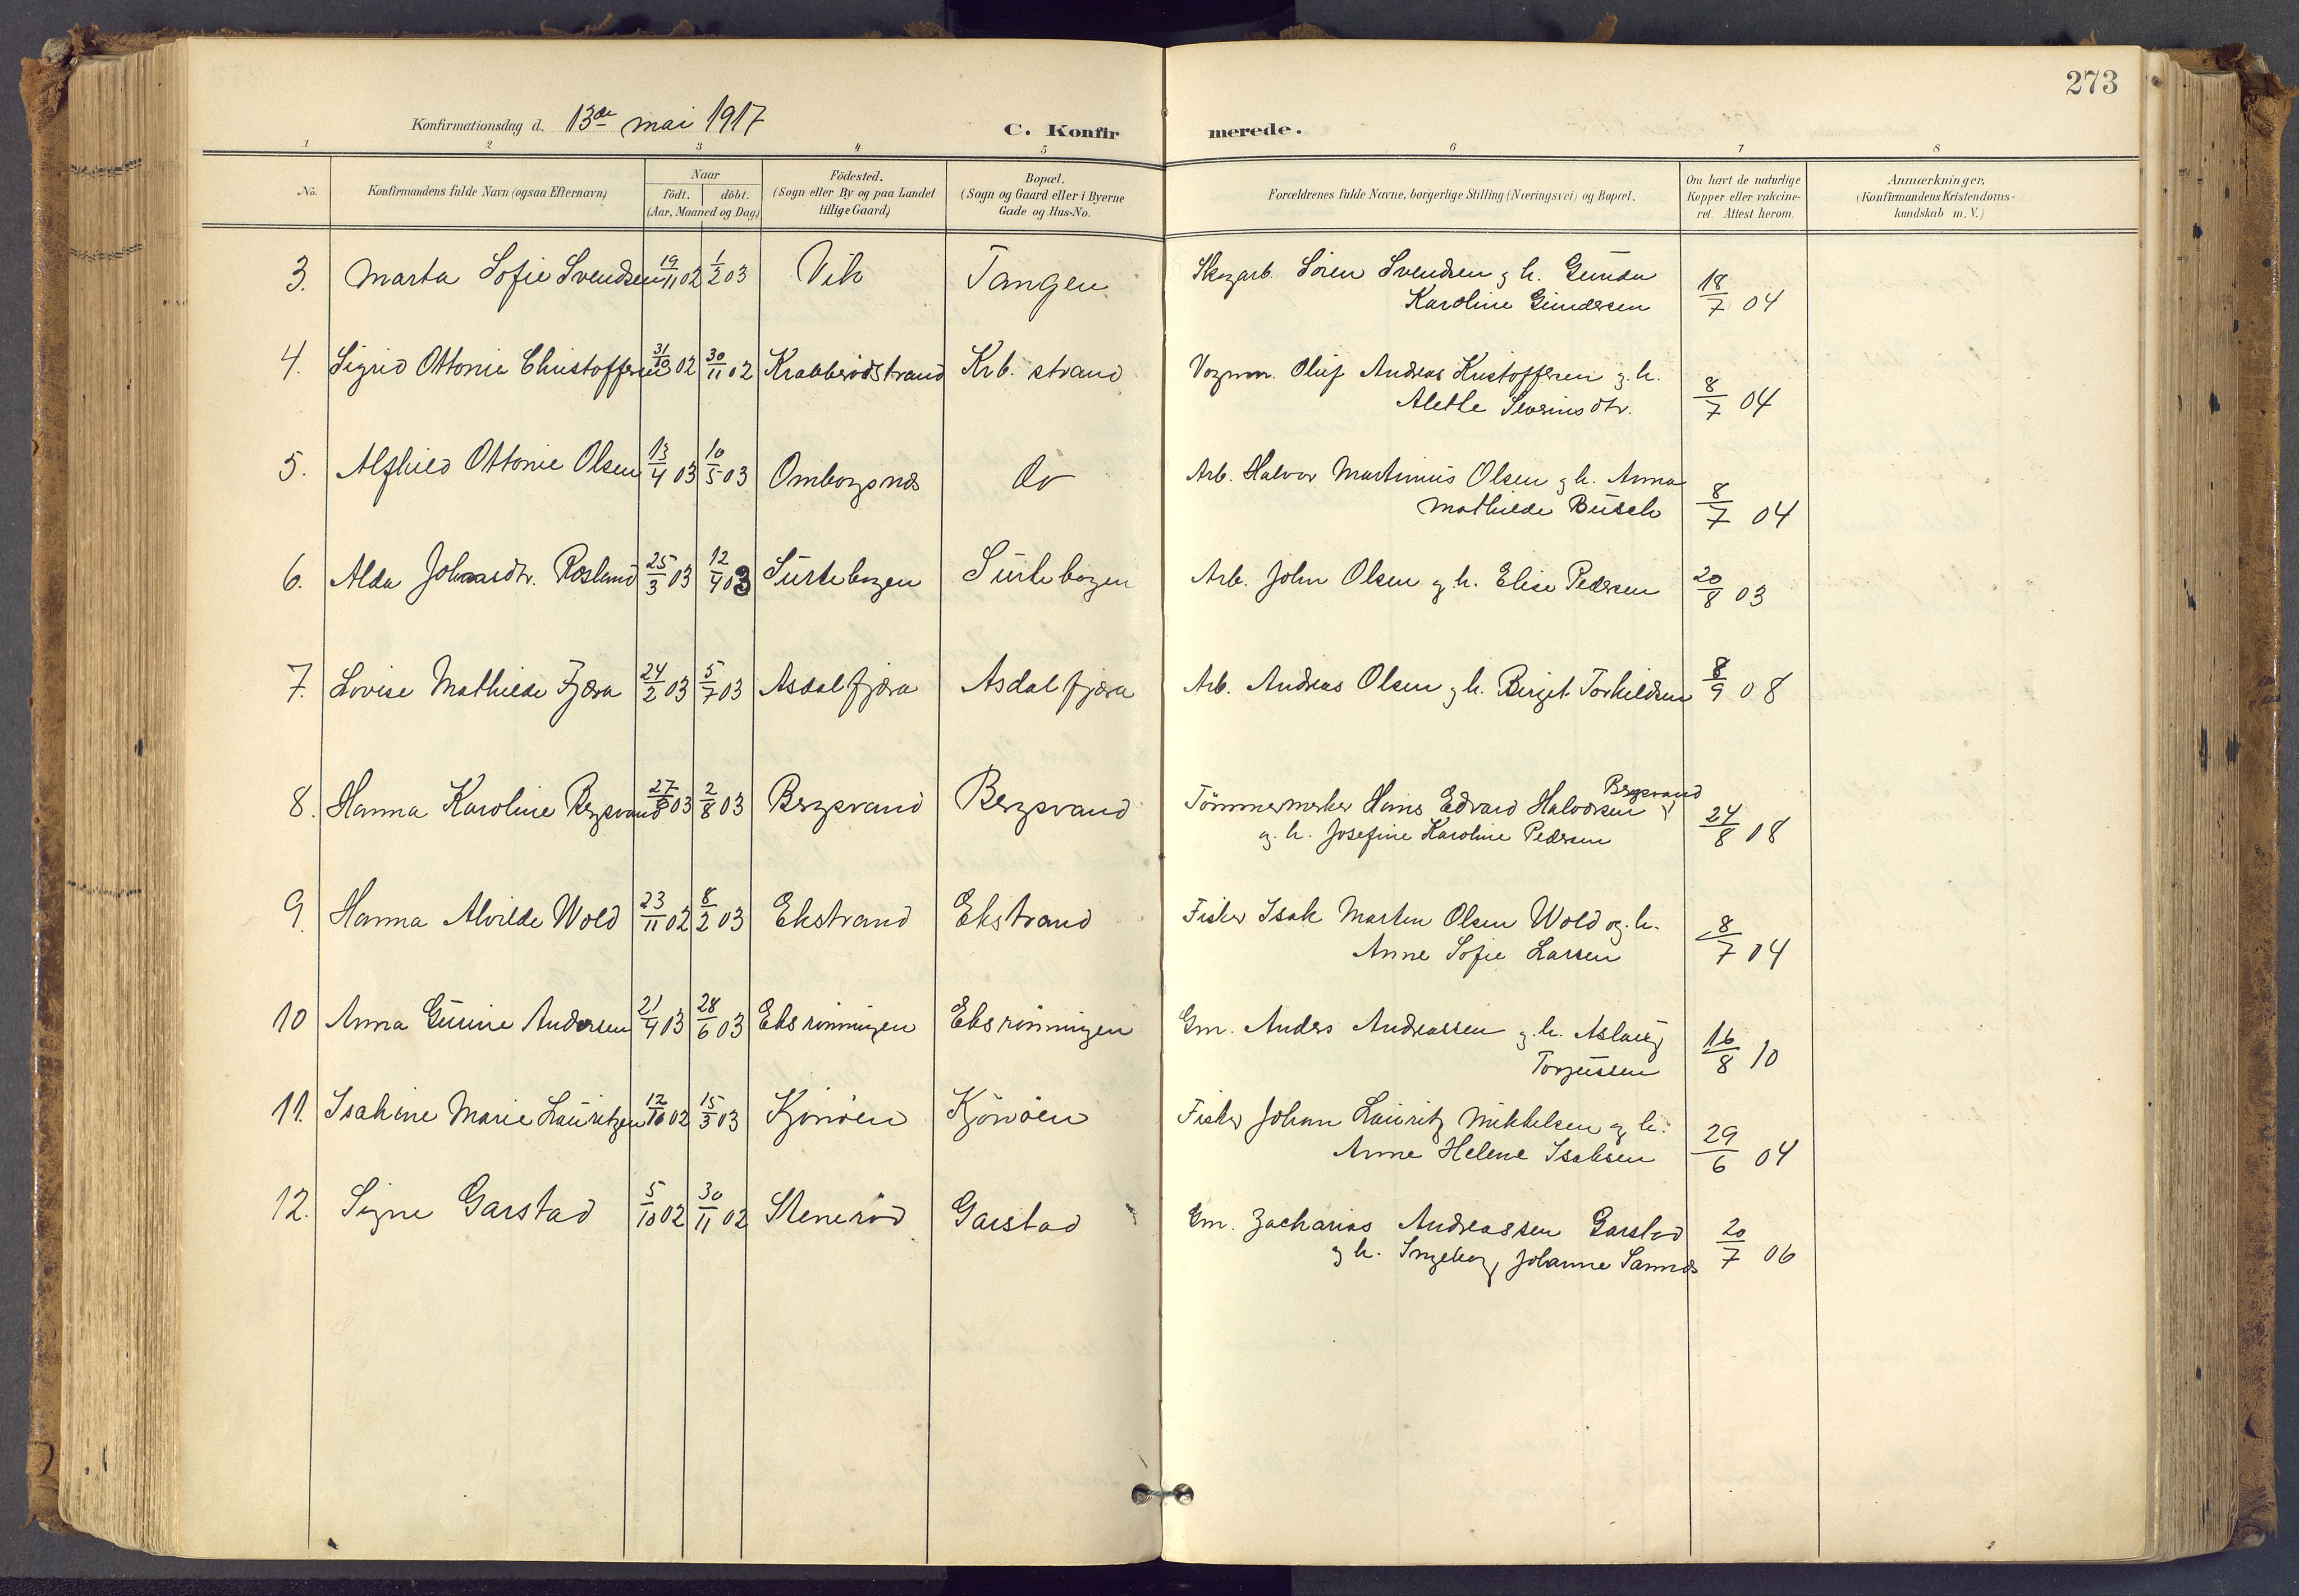 273
Konfirmationsdag d. 13de mai 1917
C. Konfirmerede.
1 2 3 4 5 6 7 8
No. Konfirmandens fulde Navn (ogsaa Efternavn) Naar födt. döbt. (Aar, Maaned og Dag) Födested. (Sogn eller By og paa Landet tillige Gaard) Bopæl. (Sogn og Gaard eller i Byerne Gade og Hus-No. Forældrenes fulde Navne, borgerlige Stilling (Næringsvei) og Bopæl. Om havt de naturlige Kopper eller vakcineret Attest herom. Anmærkninger. (Konfirmandens Kristendomskundskab m. V.)
3. Marta Sofie Svendsen 19/11 02 1/2 03 Vik Tangen Skogarb. Sören Svendsen g. h. Gunda
Karoline Gundersen 18/7 04
4. Sigrid Ottonie Christoffersen 31/10 02 30/11 02 Krabberödstrand Krb. strand Vognm. Oluf Andreas Kristoffersen g. h.
Alethe Severinsdtr. 8/7 04
5. Alfhild Ottonie Olsen 13/4 03 10/5 03 Omborgsnes do Arb. Halvor Martinius Olsen g h. Anna
Mathilde Busch 8/7 04
6. Alda Johnsdtr. Rosland 25/3 03 12/4 03 Surtebogen Surtebogen Arb. John Olsen g. h. Elise Pedersen 20/8 03
7. Lovise Mathilde Fjæra 24/2 03 5/7 03 Asdalfjæra Asdalfjæra Arb. Andreas Olsen g h. Birgit Torkildsen 8/9 08
8. Hanna Karoline Bergsvand 27/ 03 2/8 03 Bergsvand Bergsvand Tömmermerker Hans Edvard Halvorsen Bergsvand
og. h. Josefine Karoline Pedersen 24/8 08
9. Hanna Alvilde Wold 23/11 02 8/2 03 Ekstrand Ekstrand Fisker Isak Martin Olsen Wold og. h.
Anne Sofie Larsen 8/7 04
10 Anna Gurine Andersen 21/4 03 28/6 03 Eksrönningen Eksrönningen Gm. Anders Andreassen g. h. Aslaug
Torjussen 16/8 10
11. Isakine Marie Lauritzen 12/10 02 15/3 03 Kjönöen Kjönöen Fisker Johan Lauritz Mikkelsen og h.
Anne Helene Isaksen 29/6 04
12. Signe Garstad 5/10 02 30/11 02 Steneröd Garstad Gm. Zacharias Andreassen Garstad
g h. Ingeborg Johanne Sannes 20/7 06